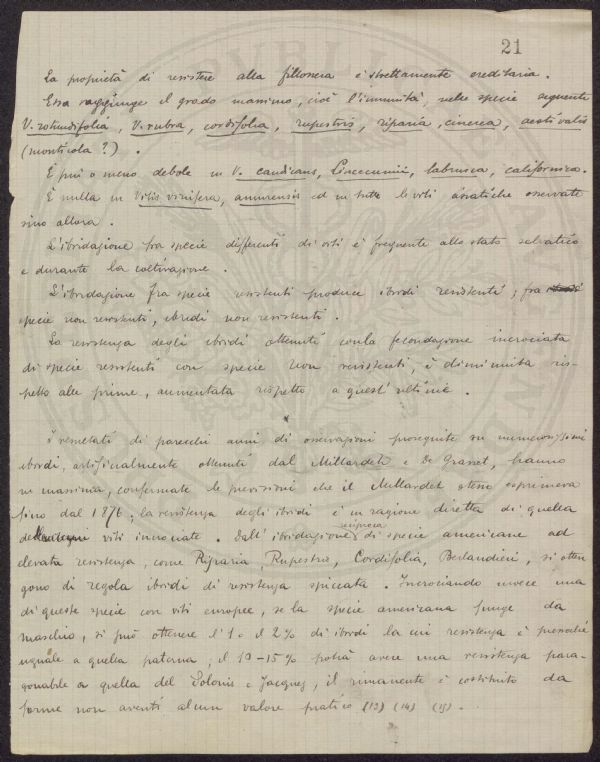 21
La proprietà di resistere alla fillossera è strettamente ereditaria.
Essa raggiunge il grado massimo, cioè l'immunità, nelle specie seguente
V. rotundifolia, V. rubra, cordifolia, rupestris, riparia, cinerea, aestivalis
(monticola?).
È più o meno debole in V. candicans, Lincecumii, labrusca, californica.
È nulla in Vitis vinifera, amurensis ed in tutte le viti asiatiche osservate
sino allora.
L'ibridazione fra specie differenti di viti è frequente allo stato selvatico
e durante la coltivazione.
L'ibridazione fra specie resistenti produce ibridi resistenti; fra
specie non resistenti, ibridi non resistenti.
La resistenza degli ibridi ottenuti con la fecondazione incrociata
di specie resistenti con specie non resistenti, è diminuita ris-
petto alle prime, aumentata rispetto a quest'ultime.
I resultati di parecchi anni di osservazioni proseguite su numerosissimi
ibridi, artificialmente ottenuti dal Millardet e De Grasset, hanno
in massima, confermate le previsioni che il Millardet stesso esprimeva
fino dal 1876; la resistenza degli ibridi è in ragione diretta di quella
viti incrociate. Dall'ibridazione reciproca di specie americane ad
elevata resistenza, come Riparia, Rupestris, Cordifolia, Berlandieri, si otten
gono di regola ibridi di resistenza spiccata. Incrociando invece una
di queste specie con viti europee, se la specie americana funge da
maschio, si può ottenere l'1 o il 2% di ibridi la cui resistenza è pressoché
uguale a quella paterna; il 10-15% potrà avere una resistenza para-
gonabile a quella del Solonis e Jacquez, il rimanente è costituito da
forme non aventi alcun valore pratico (13) (14) (15).